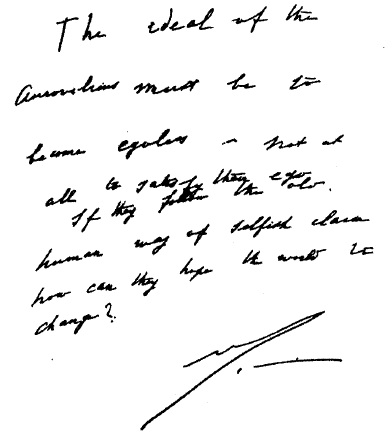 The ideal of the
Aurovilians must be to
become egoless – not at
all to satisfy their ego.
If they follow the old
human way of selfish claim
how can they hope the world to
change?